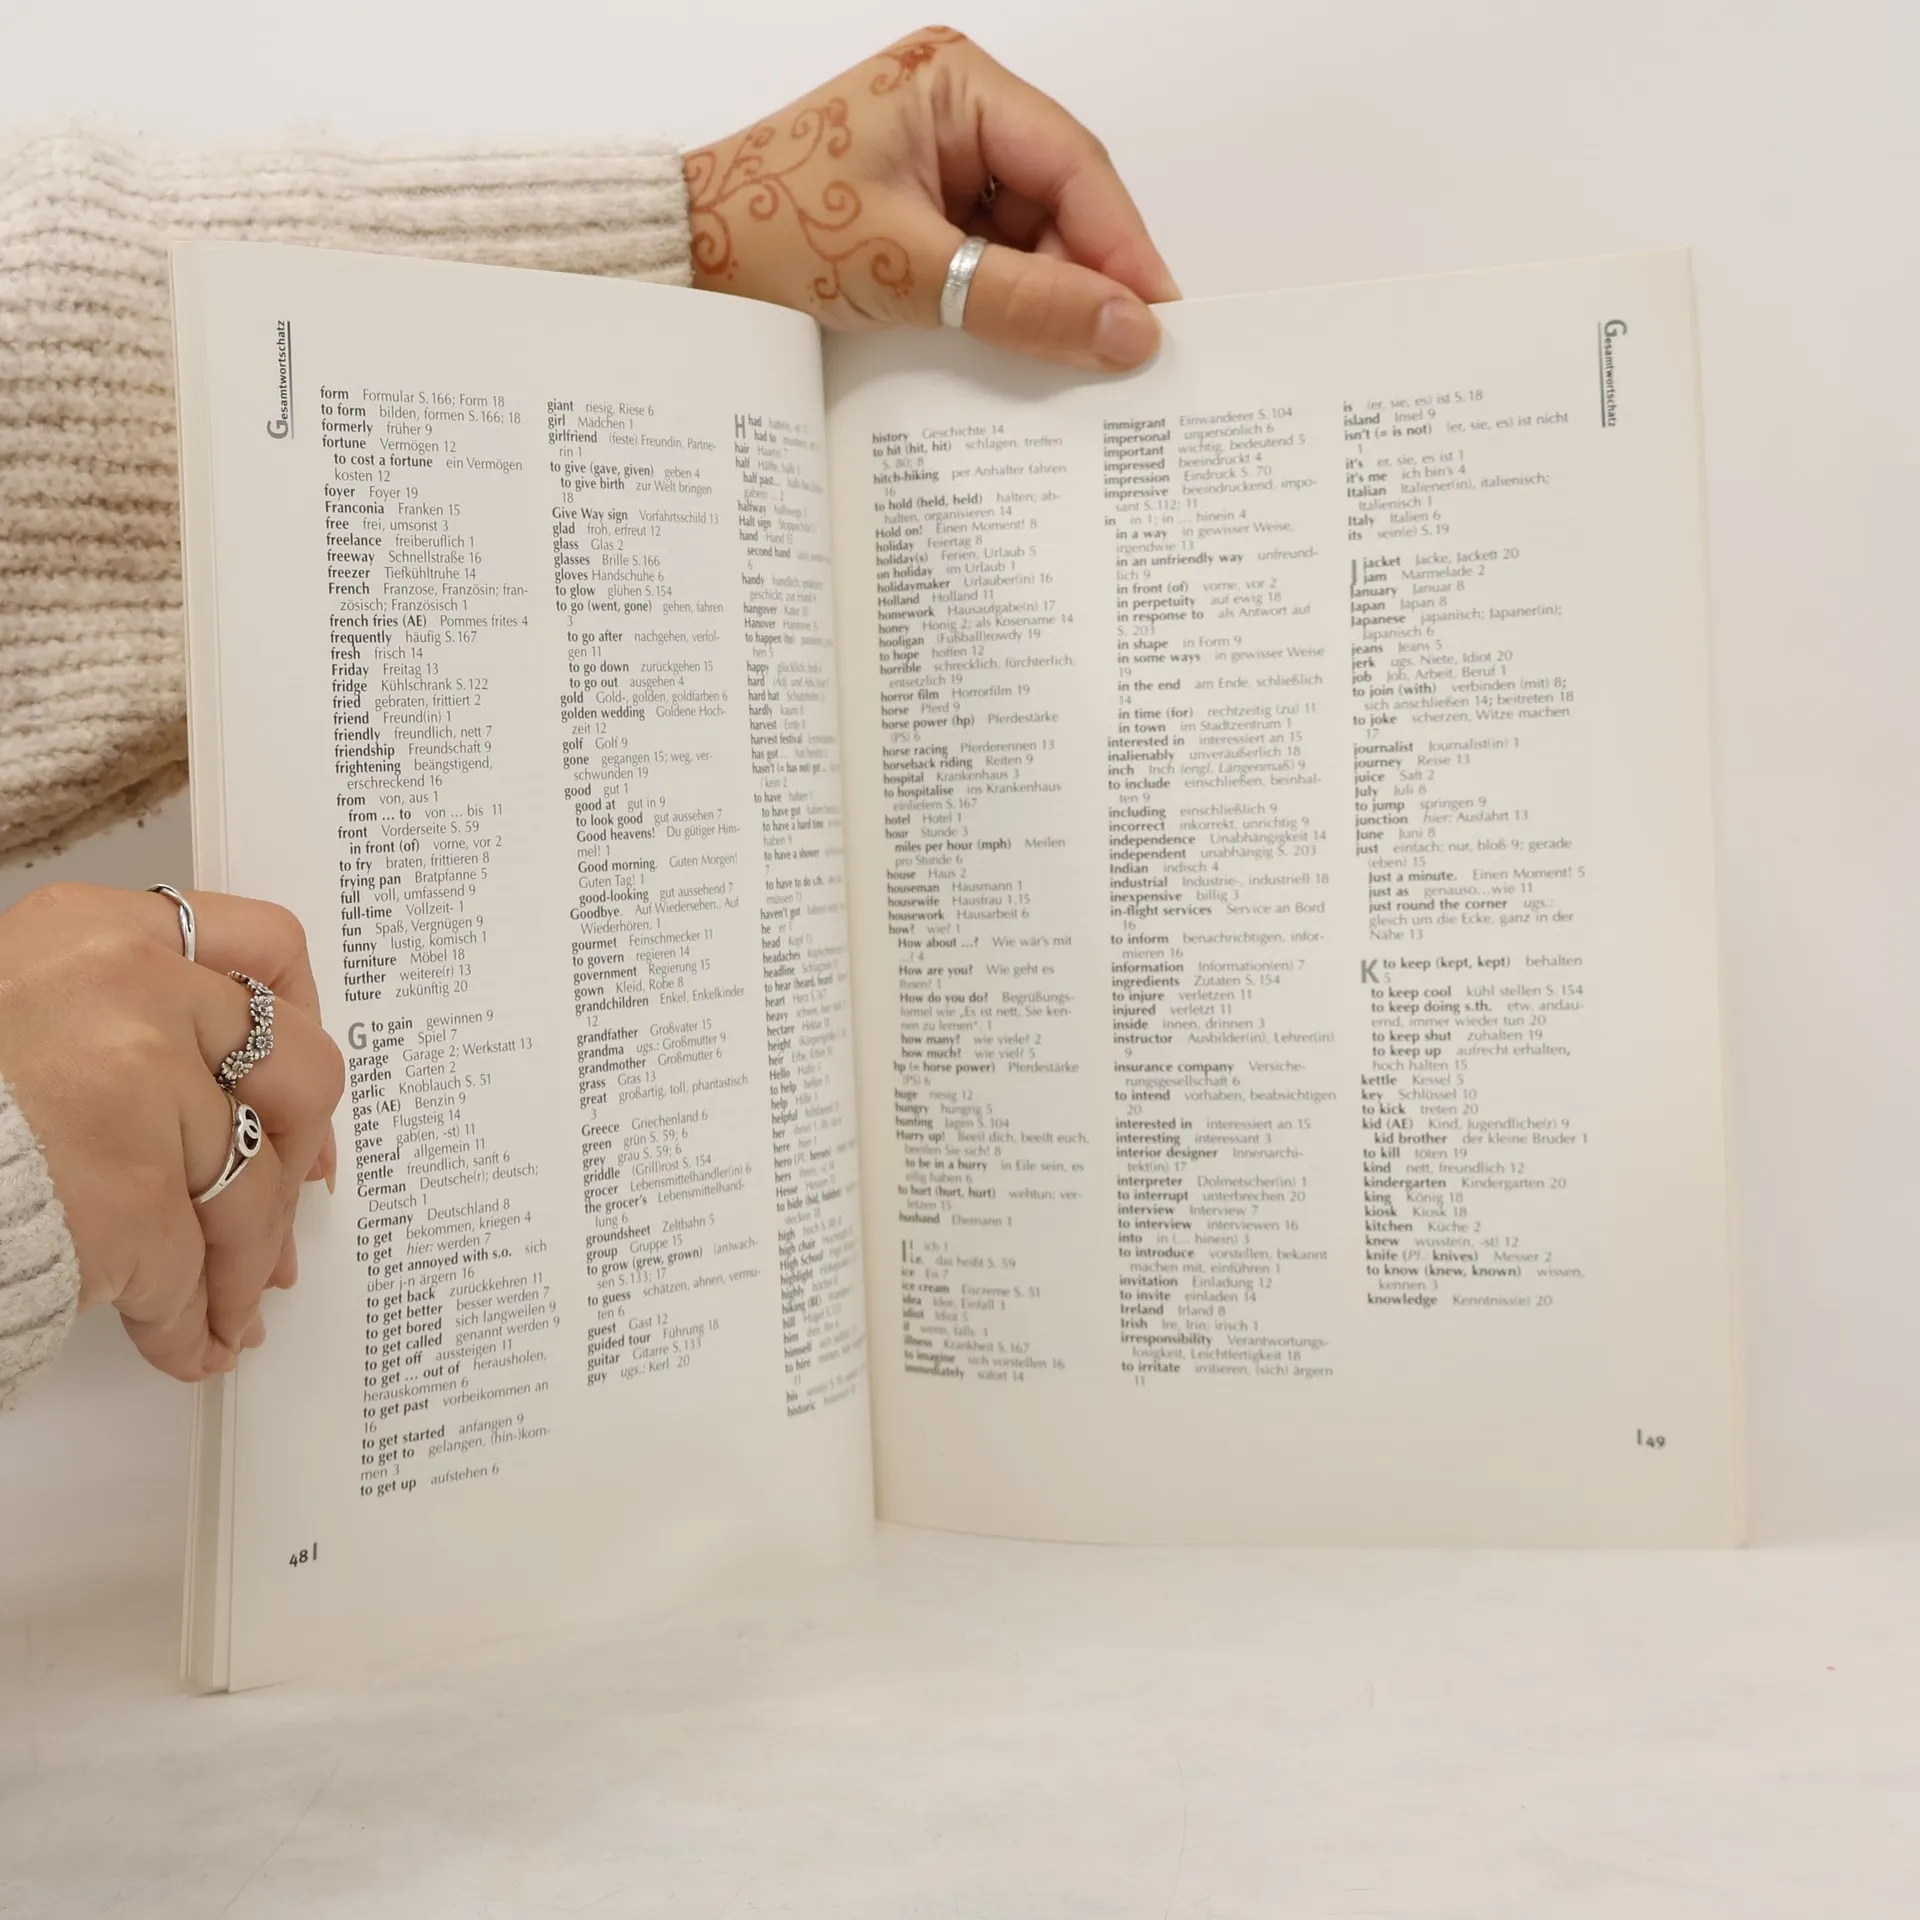 Gesamtwortschatz
form Formular S. 166; Form 18
to form bilden, formen S. 166; 18
formerly früher 9
fortune Vermögen 12
to cost a fortune ein Vermögen
kosten 12
foyer Foyer 19
Franconia Franken 15
free frei, umsonst 3
freelance freiberuflich 1
freeway Schnellstraße 16
freezer Tiefkühltruhe 14
French Franzose, Französin; fran-
zösisch; Französisch 1
french fries (AE) Pommes frites 4
frequently häufig S. 167
fresh frisch 14
Friday Freitag 13
fridge Kühlschrank S. 122
fried gebraten, frittiert 2
friend Freund(in) 1
friendly freundlich, nett 7
friendship Freundschaft 9
frightening beängstigend,
erschreckend 16
from von, aus 1
from ... to von ... bis 11
front Vorderseite S. 59
in front (of) vorne, vor 2
to fry braten, frittieren 8
frying pan Bratpfanne 5
full voll, umfassend 9
full-time Vollzeit- 1
fun Spaß, Vergnügen 9
funny lustig, komisch 1
furniture Möbel 18
further weitere(r) 13
future zukünftig 20
G to gain gewinnen 9
game Spiel 7
garage Garage 2; Werkstatt 13
garden Garten 2
garlic Knoblauch S. 51
gas (AE) Benzin 9
gate Flugsteig 14
gave gab(en, -st) 11
general allgemein 11
gentle freundlich, sanft 6
German Deutsche(r); deutsch;
Deutsch 1
Germany Deutschland 8
to get bekommen, kriegen 4
to get hier: werden 7
to get annoyed with s.o. sich
über j-n ärgern 16
to get back zurückkehren 11
to get better besser werden 7
to get bored sich langweilen 9
to get called genannt werden 9
to get off aussteigen 11
to get ... out of herausholen,
herauskommen 6
to get past vorbeikommen an
16
to get started anfangen 9
to get to gelangen, (hin-)kom-
men 3
to get up aufstehen 6
giant riesig, Riese 6
girl Mädchen 1
girlfriend (feste) Freundin, Partne-
rin 1
to give (gave, given) geben 4
to give birth zur Welt bringen
18
Give Way sign Vorfahrtsschild 13
glad froh, erfreut 12
glass Glas 2
glasses Brille S. 166
gloves Handschuhe 6
to glow glühen S. 154
to go (went, gone) gehen, fahren
3
to go after nachgehen, verfol-
gen 11
to go down zurückgehen 15
to go out ausgehen 4
gold Gold-, golden, goldfarben 6
golden wedding Goldene Hoch-
zeit 12
golf Golf 9
gone gegangen 15; weg, ver-
schwunden 19
good gut 1
good at gut in 9
to look good gut aussehen 7
Good heavens! Du gütiger Him-
mel! 1
Good morning. Guten Morgen!
Guten Tag! 1
good-looking gut aussehend 7
Goodbye. Auf Wiedersehen., Auf
Wiederhören. 1
gourmet Feinschmecker 11
to govern regieren 14
government Regierung 15
gown Kleid, Robe 8
grandchildren Enkel, Enkelkinder
12
grandfather Großvater 15
grandma ugs.: Großmutter 9
grandmother Großmutter 6
grass Gras 13
great großartig, toll, phantastisch
3
Greece Griechenland 6
green grün S. 59; 6
grey grau S. 59; 6
griddle (Grill)rost S. 154
grocer Lebensmittelhändler(in) 6
the grocer's Lebensmittelhand-
lung 6
groundsheet Zeltbahn 5
group Gruppe 15
to grow (grew, grown) (an)wach-
sen S. 133; 17
to guess schätzen, ahnen, vermu-
ten 6
guest Gast 12
guided tour Führung 18
guitar Gitarre S. 133
guy ugs.: Kerl 20
H had
had to
hair
half
half past...
halfway
Halt sign
hand
second hand
6
handy
hangover
Hanover
to happen (to)
happy
hard
hard hat
hardly
harvest
harvest festival
has got
hasn't (= has not) got
to have
to have got
to have a hard time
to have a shower
7
to have to do s.th.
haven't got
he er 1
head Kopf
headaches
headline
to hear (heard, heard)
heart
heavy
hectare
height
heir
Hello
to help
help
helpful
her
here
hero (Pl. heroes)
hers
Hesse
to hide (hid, hidden)
high
high chair
High School
highlight
highly
hiking (BE)
hill
him
himself
to hire
11
his
historic
48
Gesamtwortschatz
history Geschichte 14
to hit (hit, hit) schlagen, treffen
S. 80; 8
hitch-hiking per Anhalter fahren
16
to hold (held, held) halten; ab-
halten, organisieren 14
Hold on! Einen Moment! 8
holiday Feiertag 8
holiday(s) Ferien, Urlaub 5
on holiday im Urlaub 1
holidaymaker Urlauber(in) 16
Holland Holland 11
homework Hausaufgabe(n) 17
honey Honig 2; als Kosename 14
hooligan (Fußball)rowdy 19
to hope hoffen 12
horrible schrecklich, fürchterlich,
entsetzlich 19
horror film Horrorfilm 19
horse Pferd 9
horse power (hp) Pferdestärke
(PS) 6
horse racing Pferderennen 13
horseback riding Reiten 9
hospital Krankenhaus 3
to hospitalise ins Krankenhaus
einliefern S. 167
hotel Hotel 1
hour Stunde 3
miles per hour (mph) Meilen
pro Stunde 6
house Haus 2
houseman Hausmann 1
housewife Hausfrau 1,15
housework Hausarbeit 6
how? wie? 1
How about ...? Wie wär's mit
...? 4
How are you? Wie geht es
Ihnen? 1
How do you do? Begrüßungs-
formel wie „Es ist nett, Sie ken-
nen zu lernen". 1
how many? wie viele? 2
how much? wie viel? 5
hp (= horse power) Pferdestärke
(PS) 6
huge riesig 12
hungry hungrig 5
hunting Jagen S. 104
Hurry up! Beeil dich, beeilt euch,
beeilen Sie sich! 8
to be in a hurry in Eile sein, es
eilig haben 6
to hurt (hurt, hurt) wehtun; ver-
letzen 15
husband Ehemann 1
I I ich 1
i.e. das heißt S. 59
ice Eis 7
ice cream Eiscreme S. 51
idea Idee, Einfall 3
idiot Idiot 5
if wenn, falls 1
illness Krankheit S. 167
to imagine sich vorstellen 16
immediately sofort 14
immigrant Einwanderer S. 104
impersonal unpersönlich 6
important wichtig, bedeutend 5
impressed beeindruckt 4
impression Eindruck S. 70
impressive beeindruckend, impo-
sant S. 112; 11
in in 1; in ... hinein 4
in a way in gewisser Weise,
irgendwie 13
in an unfriendly way unfreund-
lich 9
in front (of) vorne, vor 2
in perpetuity auf ewig 18
in response to als Antwort auf
S. 203
in shape in Form 9
in some ways in gewisser Weise
19
in the end am Ende, schließlich
14
in time (for) rechtzeitig (zu) 11
in town im Stadtzentrum 1
interested in interessiert an 15
inalienably unveräußerlich 18
inch Inch (engl. Längenmaß) 9
to include einschließen, beinhal-
ten 9
including einschließlich 9
incorrect inkorrekt, unrichtig 9
independence Unabhängigkeit 14
independent unabhängig S. 203
Indian indisch 4
industrial Industrie-, industriell 18
inexpensive billig 3
in-flight services Service an Bord
16
to inform benachrichtigen, infor-
mieren 16
information Information(en) 7
ingredients Zutaten S. 154
to injure verletzen 11
injured verletzt 11
inside innen, drinnen 3
instructor Ausbilder(in), Lehrer(in)
9
insurance company Versiche-
rungsgesellschaft 6
to intend vorhaben, beabsichtigen
20
interested in interessiert an 15
interesting interessant 3
interior designer Innenarchi-
tekt(in) 17
interpreter Dolmetscher(in) 1
to interrupt unterbrechen 20
interview Interview 7
to interview interviewen 16
into in (... hinein) 3
to introduce vorstellen, bekannt
machen mit, einführen 1
invitation Einladung 12
to invite einladen 14
Ireland Irland 8
Irish Ire, Irin; irisch 1
irresponsibility Verantwortungs-
losigkeit, Leichtfertigkeit 18
to irritate irritieren, (sich) ärgern
11
is (er, sie, es) ist S. 18
island Insel 9
isn't (= is not) (er, sie, es) ist nicht
1
it's er, sie, es ist 1
it's me ich bin's 4
Italian Italiener(in), italienisch;
Italienisch 1
Italy Italien 6
its sein(e) S. 19
J jacket Jacke, Jackett 20
jam Marmelade 2
January Januar 8
Japan Japan 8
Japanese japanisch; Japaner(in);
Japanisch 6
jeans Jeans 5
jerk ugs. Niete, Idiot 20
job Job, Arbeit, Beruf 1
to join (with) verbinden (mit) 8;
sich anschließen 14; beitreten 18
to joke scherzen, Witze machen
17
journalist Journalist(in) 1
journey Reise 13
juice Saft 2
July Juli 8
to jump springen 9
junction hier: Ausfahrt 13
June Juni 8
just einfach; nur, bloß 9; gerade
(eben) 15
Just a minute. Einen Moment! 5
just as genauso...wie 11
just round the corner ugs.:
gleich um die Ecke, ganz in der
Nähe 13
K to keep (kept, kept) behalten
5
to keep cool kühl stellen S. 154
to keep doing s.th. etw. andau-
ernd, immer wieder tun 20
to keep shut zuhalten 19
to keep up aufrecht erhalten,
hoch halten 15
kettle Kessel 5
key Schlüssel 10
to kick treten 20
kid (AE) Kind, Jugendliche(r) 9
kid brother der kleine Bruder 1
to kill töten 19
kind nett, freundlich 12
kindergarten Kindergarten 20
king König 18
kiosk Kiosk 18
kitchen Küche 2
knew wusste(n, -st) 12
knife (Pl. knives) Messer 2
to know (knew, known) wissen,
kennen 3
knowledge Kenntniss(e) 20
49